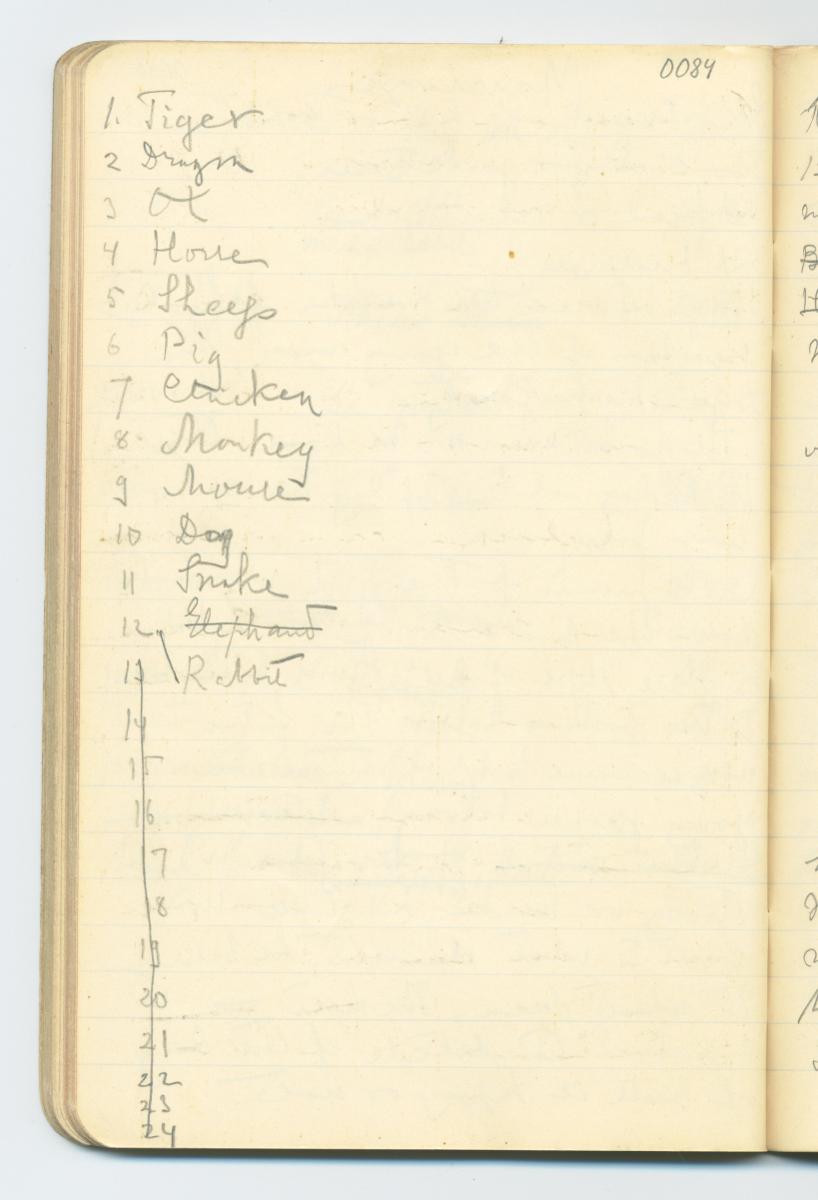 0084
1. Tiger
2 Dragon
3 Ox
4 Horse
5 Sheep
6 Pig
7 Chicken
8. Monkey
9 Mouse
10 Dog
11 Snake
12. Elephant
Rabbit
13
14
15
16
17
18
19
20
21
22
23
24